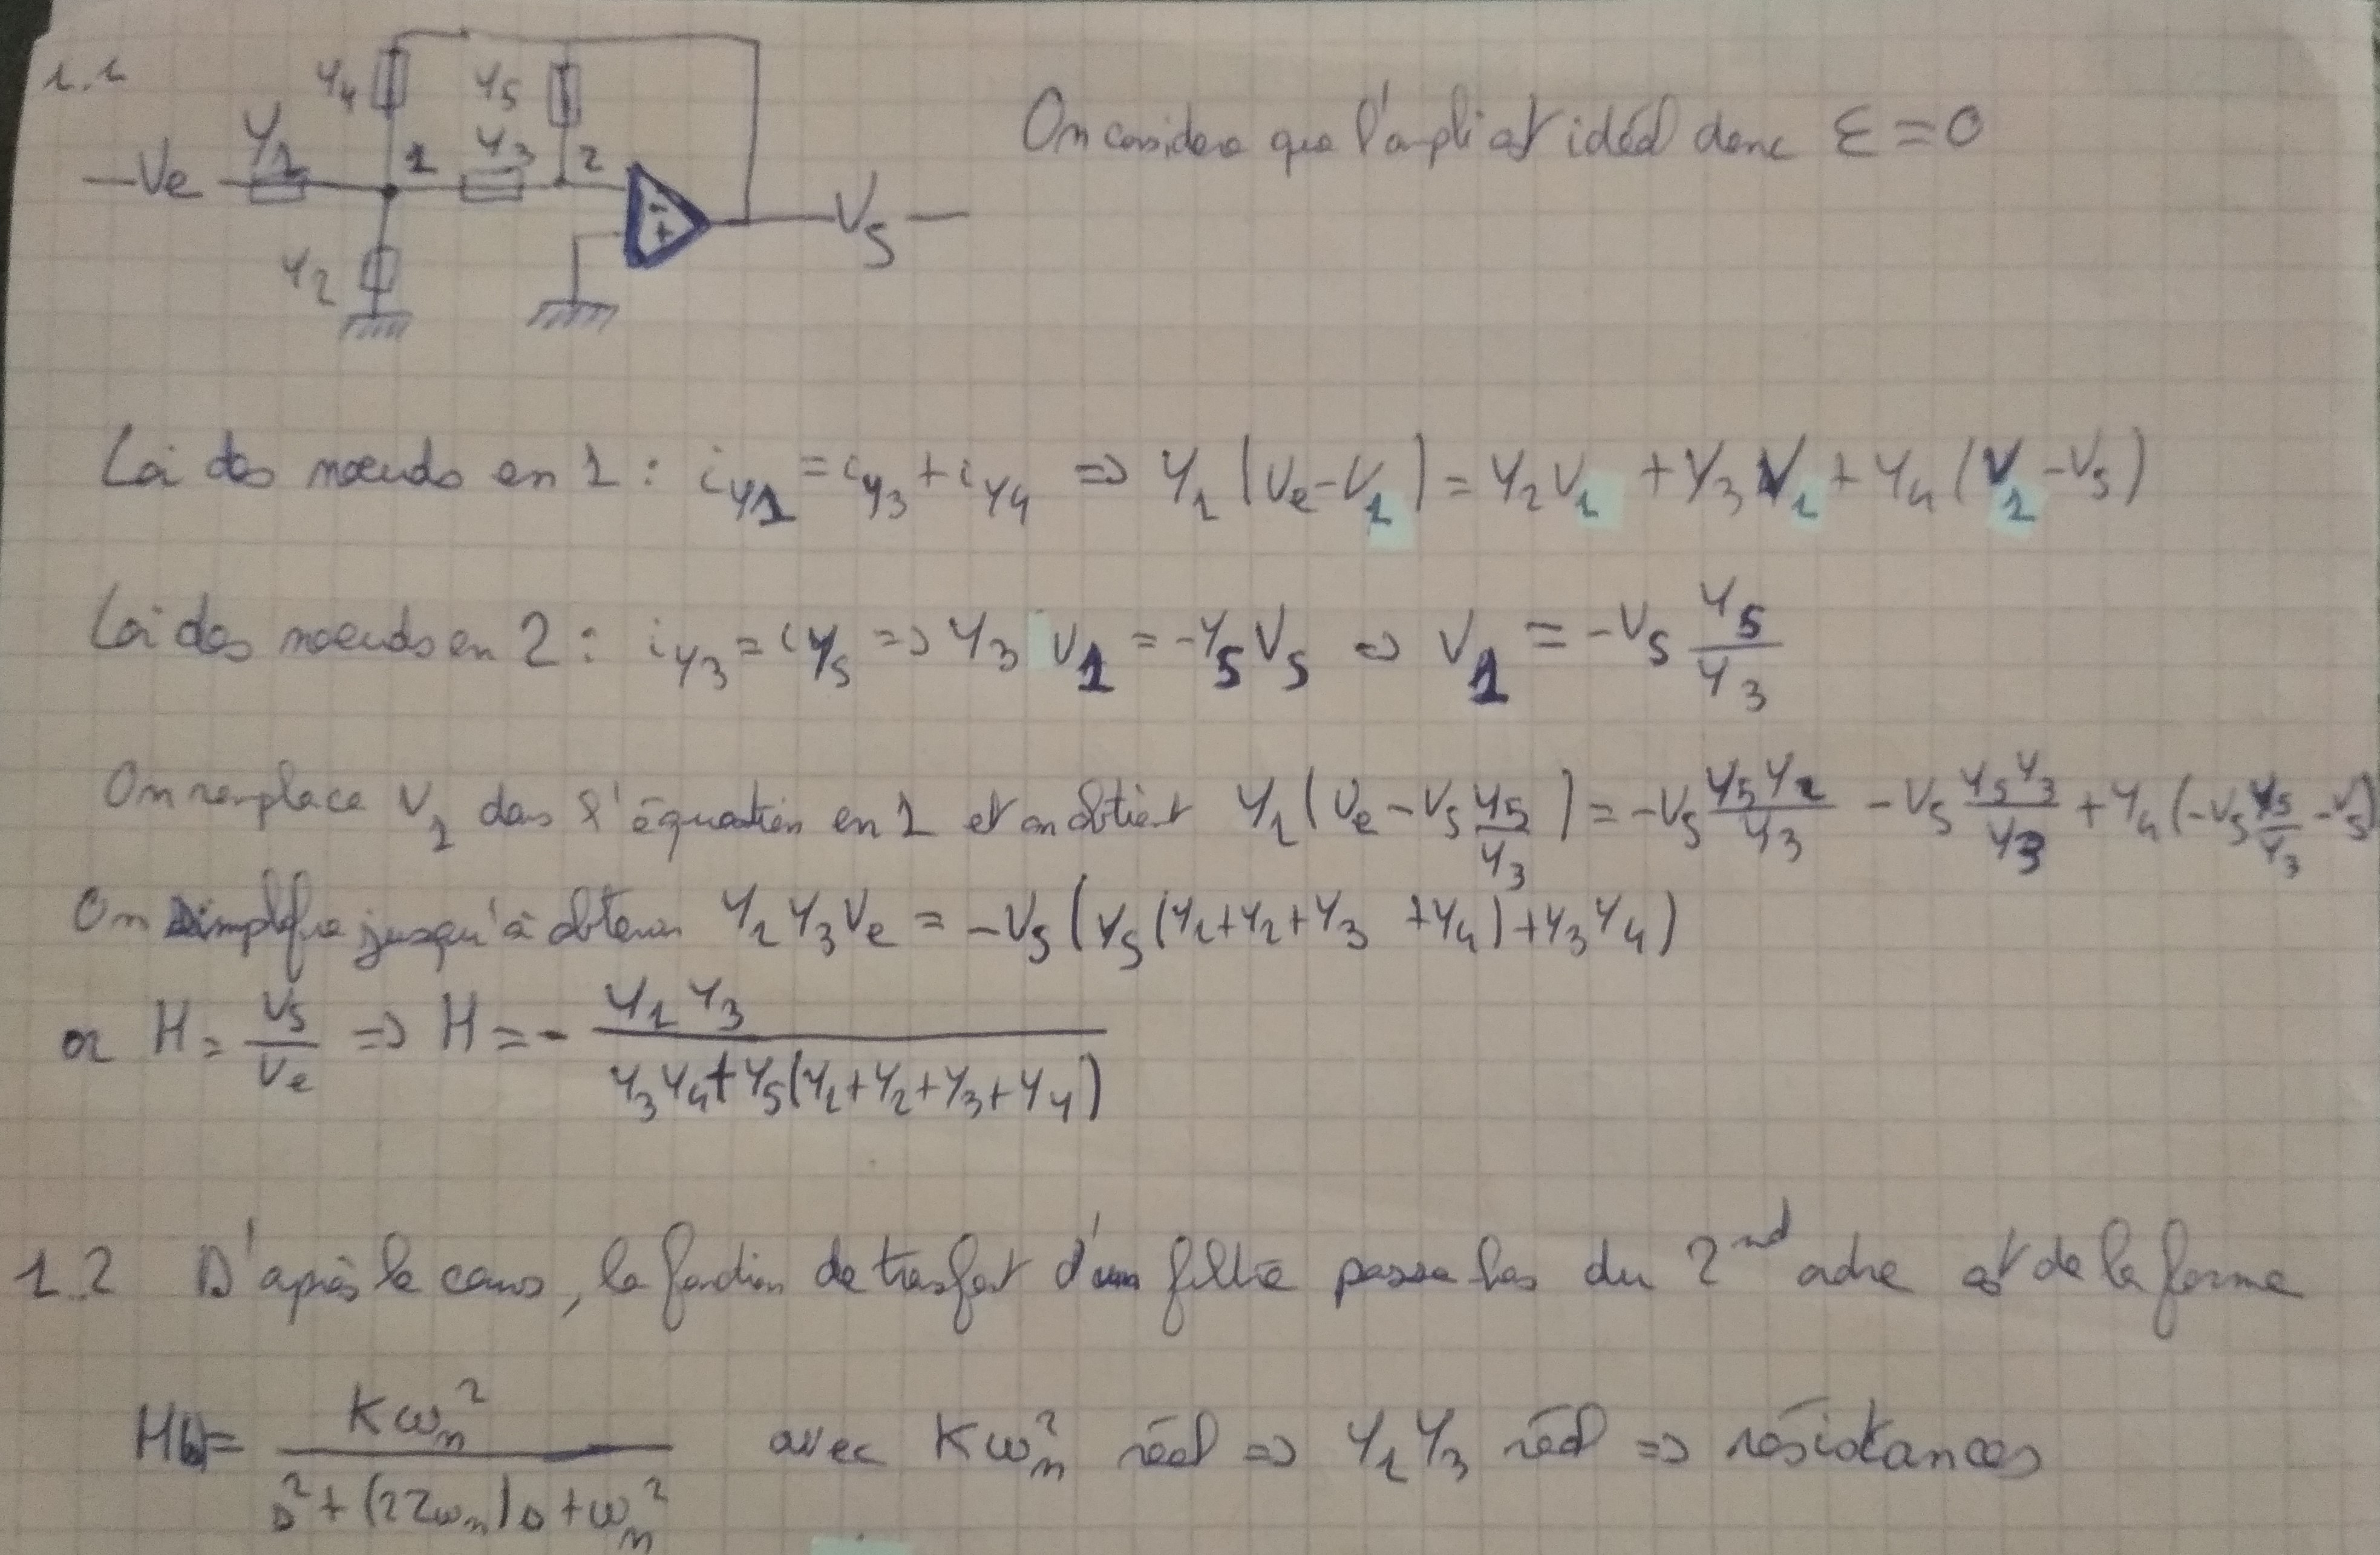 1.1
Y4 Y5
Y1 1 Y3 2
Ve
Y2
- +
Vs
On considere que l'ampli est idéal donc ε = 0
Loi des noeuds en 1 : iY1 = iY3 + iY4 => Y1 (Ve - V1) = Y2 V1 + Y3 V1 + Y4 (V1 - Vs)
Loi des noeuds en 2 : iY3 = iY5 => Y3 V1 = -Y5 Vs => V1 = -Vs Y5/Y3
On remplace V1 dans l'équation en 1 et on obtient Y1 (Ve - Vs Y5/Y3) = -Vs Y5Y2/Y3 - Vs Y5Y3/Y3 + Y4 (-Vs Y5/Y3 - Vs)
On simplifie jusqu'à obtenir Y1 Y3 Ve = -Vs (Y5 (Y1 + Y2 + Y3 + Y4) + Y3 Y4)
or H = Vs/Ve => H = - Y1 Y3 / Y3 Y4 + Y5 (Y1 + Y2 + Y3 + Y4)
1.2 D'après le cours, la fonction de transfert d'un filtre passe bas du 2nd ordre est de la forme
H(s) = Kωn² / s² + (2Zωn)s + ωn² avec Kωn² réel => Y1 Y3 réel => résistances